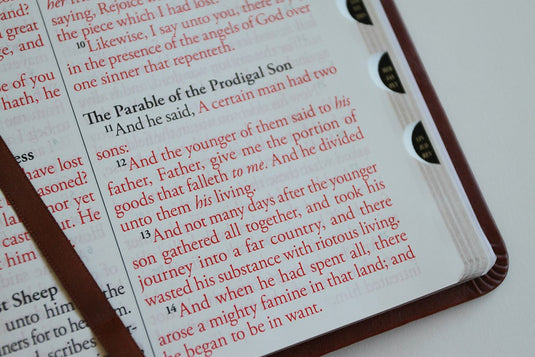 and?
A great
nge, and
se of you
hath, he
ess
have lost
asoned?
nor yet
cast out. He
him
st Sheep
unto him
nners for to
scribes
her
saying, Rejoice
the piece which I had lost.
10 Likewise, I say unto you, there is
in the presence of the angels of God over
one sinner that repenteth.
The Parable of the Prodigal Son
11 And he said, A certain man had two
sons:
12 And the younger of them said to his
father, Father, give me the portion of
goods that falleth to me. And he divided
unto them his living.
13 And not many days after the younger
son gathered all together, and took his
journey into a far country, and there
wasted his substance with riotous living.
14 And when he had spent all, there
arose a mighty famine in that land; and
he began to be in want.